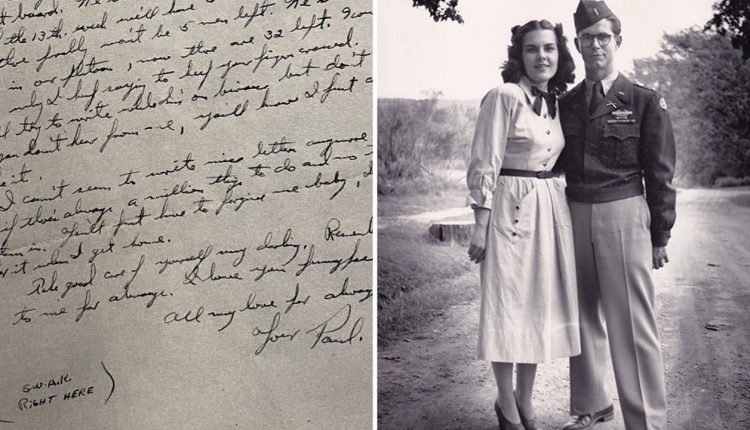 board. We
the 13th. week we'll have
there finally won't be 5 men left. We
in our platoon, now there are 32 left.
only I keep saying is keep your fingers crossed.
try to write while I'm on bivouac but don't
you don't hear from me, you'll know I just
it.
I can't seem to write nice letters anymore
if there always a million things to do and no
in. You'll just have to forgive me baby,
it when I get home.
Take good care of yourself my darling. Remem
to me for always. I love you funnyface
All my love for always
Your Paul.
S.W.A.K.
RIGHT HERE )